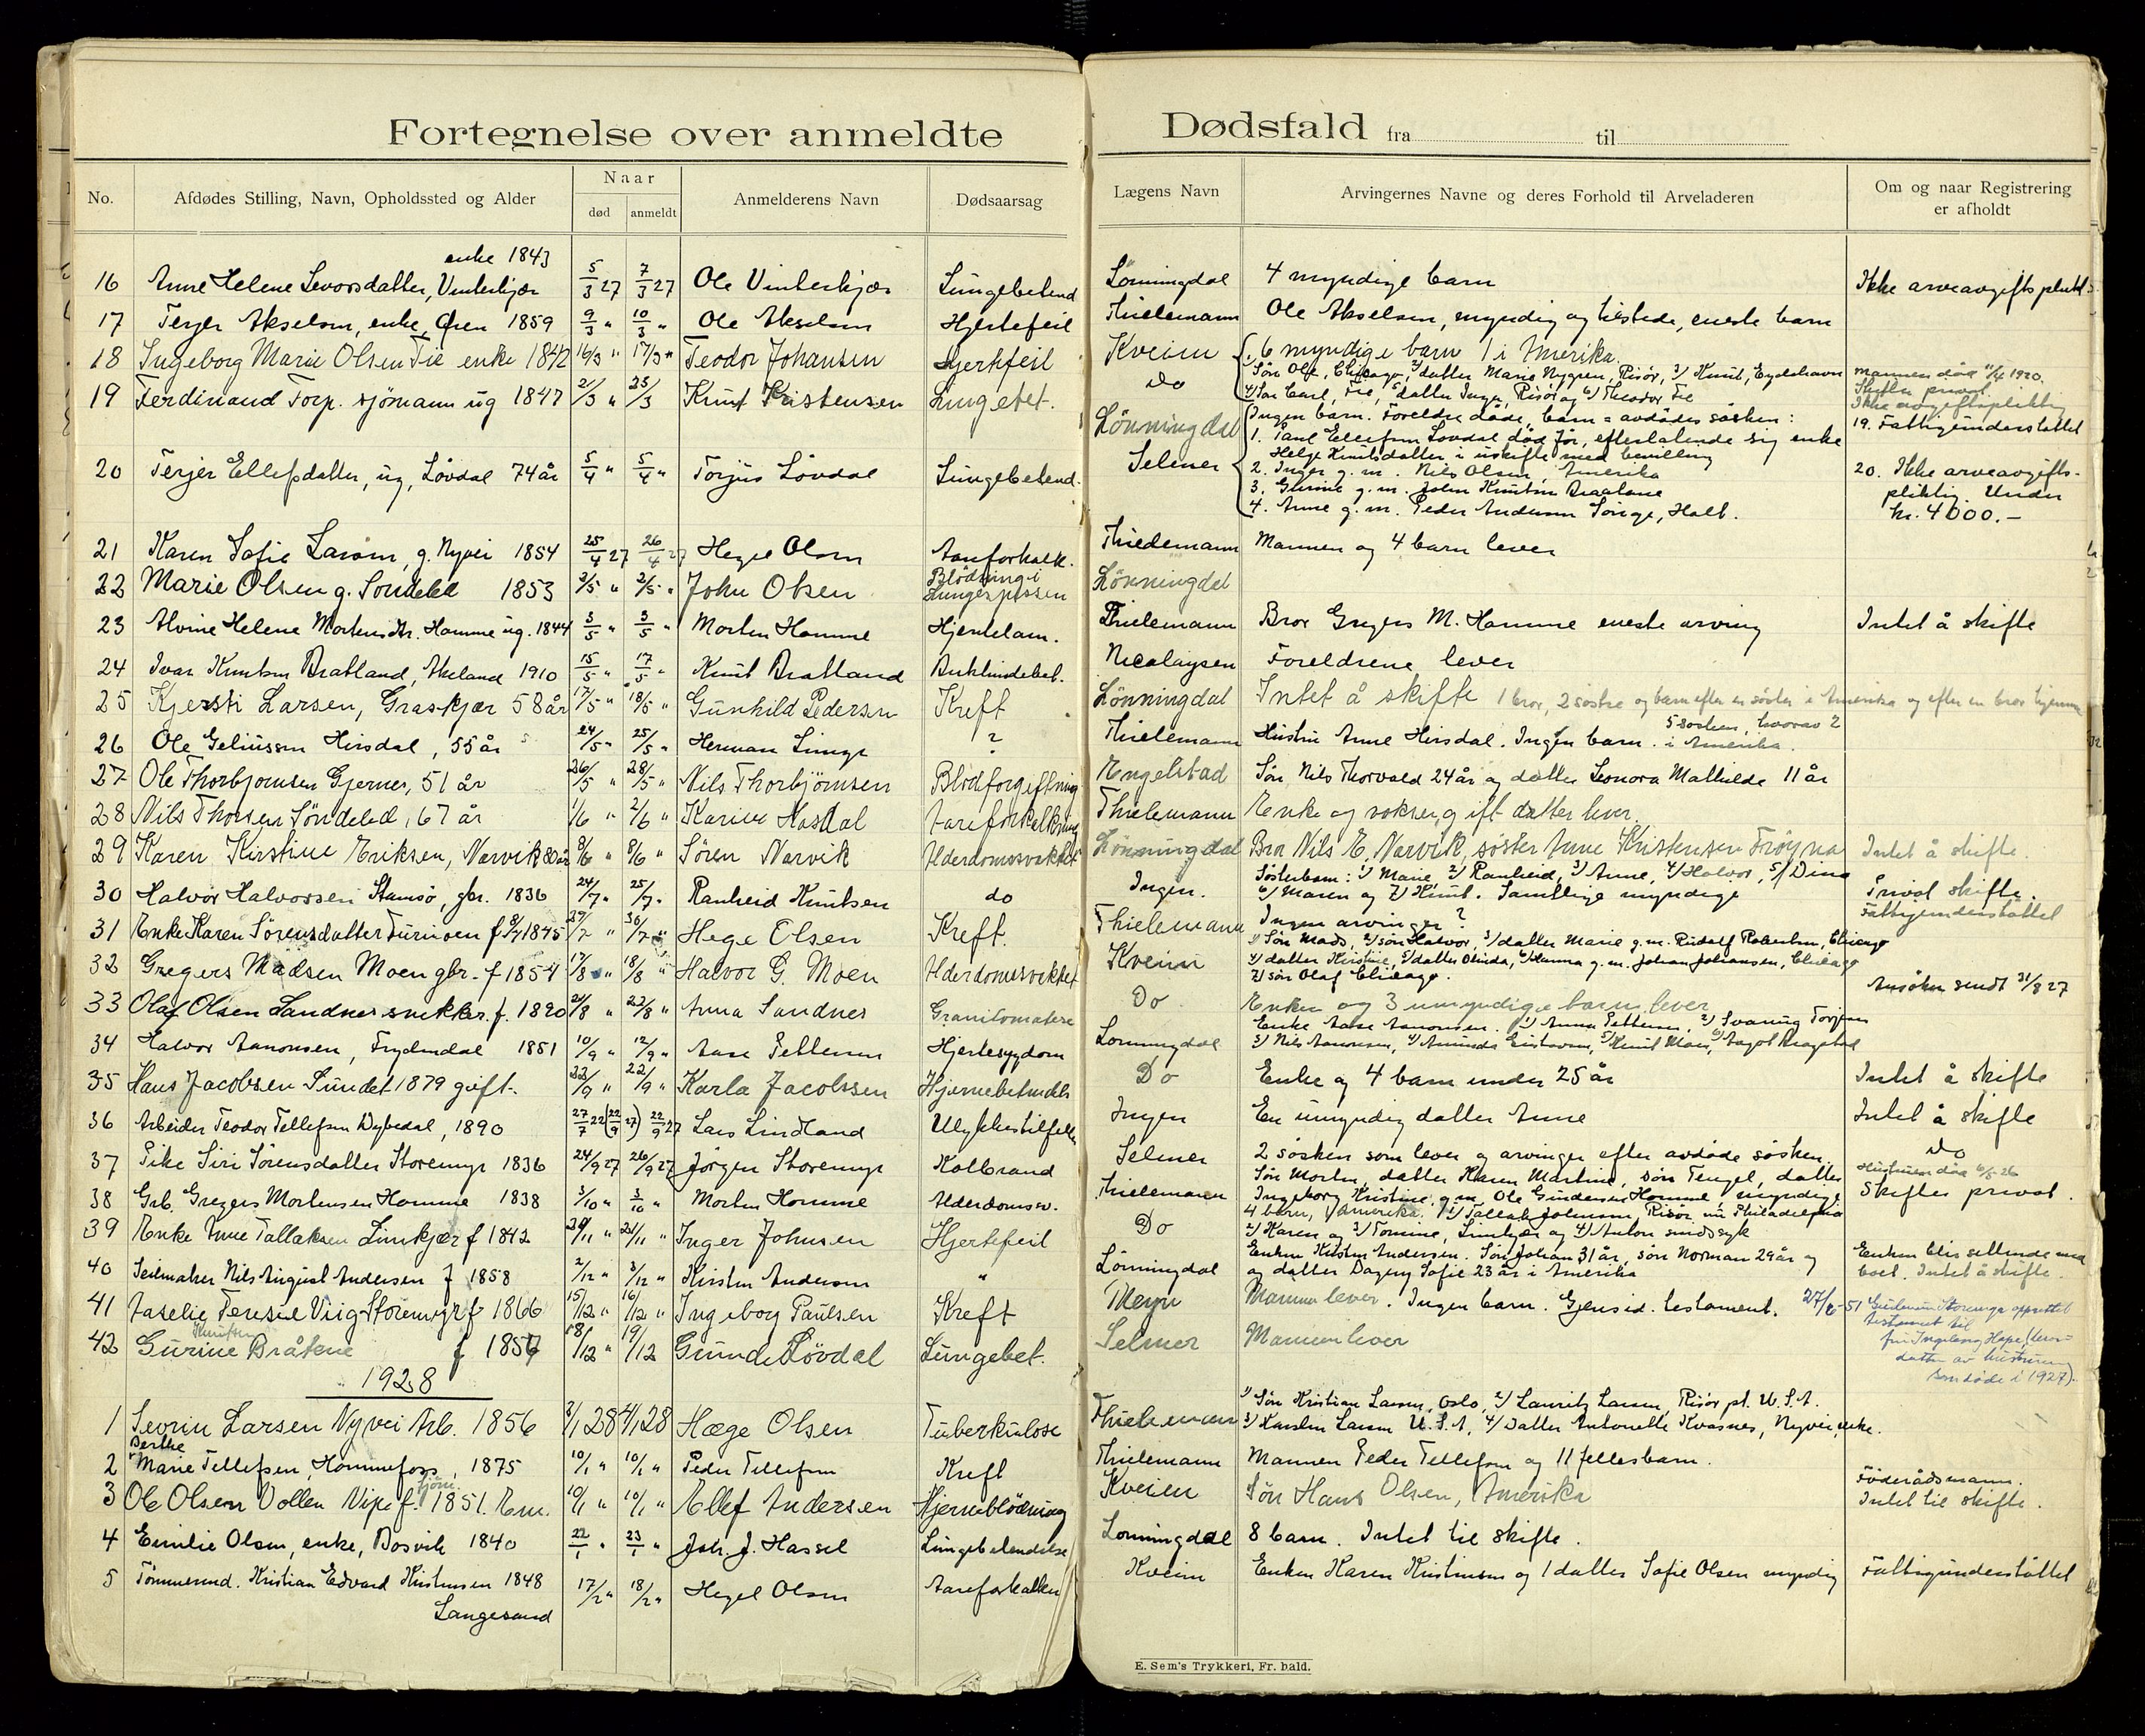 Fortegnelse over anmeldte Dødsfald fra til
No. Afdødes Stilling, Navn, Opholdssted og Alder Naar død anmeldt Anmelderens Navn Dødsaarsag Lægens Navn Arvingernes Navne og deres Forhold til Arveladeren Om og naar Registrering er afholdt
enke 1843
16 Anne Helene Levorsdatter, Vinterkjær 5/3 27 7/3 27 Ole Vinterkjær Lungebetend Lönningdal 4 myndige barn Ikke arveavgiftspliktl.
17 Terjer Akselsen, enke, Øren 1859 9/3 " 10/3 " Ole Akselsen Hjertefeil Thielemann Ole Akselsen, myndig og tilstede, eneste barn
18 Ingeborg Marie Olsen Fie enke 1842 16/3 " 17/3 " Teodor Johansen Hjertefeil Kveim 6 myndige barn 1 i Amerika.
1/ Søn Ole, Chicago, 2/ datter Marie Nygren, Risør, 3/ Knut, Eydehavn
4/ Søn Carl, Fie, 5/ datter Inger, Risør og 6/ Theodor Fie
mannen död 11/4 1920.
Skifter privat.
Ikke avgiftspliktig
19 Ferdinand Torp. sjömann ug 1847 21/3 " 23/3 Knut Kristensen Lungebet. Do
19. Fattigunderstøttet
20 Terjer Ellefsdatter, ug, Lövdal 74 år 5/4 " 5/4 " Torjus Lövdal Lungebetend. Lönningdal Selmer
Ingen barn. Foreldre döde, barn = avdödes søsken:
1. Tarel Ellefsen Lovdal død før, efterlatende sig enke
Helge Knutsdatter i uskifte med bevilling
2. Inger g. m. Nils Olsen, Amerika
3. Gurine g. m. John Knutsen Braatane
4. Anne g. m. Peder Andersen Songe, Holt.
20. Ikke arveavgifts-
pliktig. Under
kr. 4000.-
21 Karen Sofie Larsen, g. Nyvei 1854 25/4 27 26/4 27 Hege Olsen Aareforkalk. Thielemann Mannen og 4 barn lever
22 Marie Olsen g. Sondeled 1853 2/5 " 2/5 " John Olsen Blödning i Lungespissen Lönningdal
23 Alvine Helene Mortensdtr. Homme ug. 1844 3/5 " 3/5 " Morten Homme Hjertelam. Thielemann Bror Gregers M. Homme eneste arving Intet å skifte
24 Ivar Knutsen Bratland, Akeland 1910 15/5 " 17/5 " Knut Bratland Nicolaysen Foreldrene lever
25 Kjersti Larsen, Graskjær 58 år 17/5 " 18/5 " Gunhild Pedersen Kreft Lönningdal Intet å skifte 1 bror, 2 søstre og barn efter en søster i Amerika og efter en bror hjemme
26 Ole Geliussen Hirsdal, 55 år 24/5 " 25/5 " Herman Limge ? Thielemann Hustru Anne Hirsdal. Ingen barn. 5 søsken, hvorav 2 i Amerika.
27 Ole Thorbjornsen Gjernes, 51 år 26/5 " 28/5 " Nils Thorbjörnsen Blodforgiftning Engelstad Søn Nils Thorvald 24 år og datter Leonora Mathilde 11 år
28 Nils Thorsen Söndeled, 67 år 1/6 " 2/6 " Karine Hasdal Aareforkalkning Thielemann Enke og voksen, gift datter lever.
29 Karen Kirstine Eriksen, Narvik 80 år 8/6 " 8/6 " Sören Narvik Alderdomssvakhet Lönningdal Bror Nils E. Narvik, søster Anne Kristensen Fröyna Intet å skifte.
Søsterbarn: 1/ Marie, 2/ Ranheid, 3/ Anne, 4/ Halvor, 5/ Dina
6/ Maren og 7/ Knut. Samtlige myndige
30 Halvor Halvorssen Stamsø, gbr. 1836 24/7 " 25/7 " Ranheid Knutsen do Ingen. Privat skifte.
31 Enke Karen Sörensdatter Turmoen f 8/7 1845 29/7 " 30/7 " Hege Olsen Kreft. Thielemann Ingen arvinger? Fattigunderstøttet
32 Gregers Madsen Moen gbr. f 1854 17/8 " 18/8 " Halvor G. Moen Alderdomssvakhet Kveim
1/ Søn Mads, 2/ søn Halvor, 3/ datter Marie g. m. Rudolf Robertsen, Chicago
4/ datter Kristine, 5/ datter Olinda, 6/ Hanna g. m. Johan Johansen, Chicago
7/ søn Olaf Chicago.
33 Olaf Olsen Sandnes snekker. f. 1890 21/8 " 22/8 " Anna Sandnes Do Enken og 3 umyndige barn lever Ansøkn sendt 31/8 27
34 Halvor Aanonsen, Frydendal 1851 10/9 " 12/9 " Aase Pettersen Hjertesygdom Lönningdal
Enke Aase Aanonsen. 1/ Anna Pettersen, 2/ Svanug Torjusen
3/ Nils Aanonsen, 4/ Amanda Gustavsen, 5/ Knut Moen, 6/ Aagot Kragstad
35 Hans Jacobsen Sundet 1879 gift. 22/9 " 22/9 " Karla Jacobssen Hjernebetendels Do Enke og 4 barn under 25 år Intet å skifte
36 Arbeider Teodor Tellefsen Dybedal, 1890 27/7 22 (22/9 27) 22/9 27 Lars Lindland Ulykkestilfelle Ingen En umyndig datter Anne Intet å skifte
37 Pike Siri Sörensdatter Storemyr 1836 24/9 27 26/9 27 Jörgen Storemyr Kolbrand Selmer 2 søsken som lever og arvinger efter avdøde søsken. do
38 Grb. Gregers Mortensen Homme 1838 3/10 " 3/10 " Morten Homme Alderdomssv. Thielemann
Søn Morten, datter Karen Martine, søn Tengel, datter
Ingeborg Kristine g. m. Ole Gundersen Homme, myndige
Hustruen död 6/5 26
Skifter privat.
39 Enke Anne Tallaksen Limkjær f 1842 20/11 " 21/11 " Inger Johnsen Hjertefeil Do
4 barn, 1 i Amerika. 1/ Tallak Johnsen, Risør nu Philadelphia
2/ Karen og 3/ Tomine, Limkjær og 4/ Anton sindssyk
40 Seilmaker Nils August Andersen f 1858 2/12 " 3/12 " Kirsten Andersen " Lönningdal
Enken Kirsten Andersen. Søn Johan 31 år, søn Norman 29 år og
og datter Dagny Sofie 23 år i Amerika
Enken blir sittende med
boet. Intet å skifte.
41 Aaselie Teresie Viig Storemyr f 1866 15/12 " 16/12 " Ingeborg Paulsen Kreft Meyn Mannen lever. Ingen barn. Gjensid. testament.
27/2-51 Gudmun Storemyr opprettet
testament til
fru Ingeborg Hope (bror-
datter av hustruen
som døde i 1927).
42 Gurine Knutsen Bråtene f 1856 18/12 " 19/12 Gunde Lövdal Lungebet. Selmer Mannen lever
1928
1 Sevrin Larsen Nyvei Arb. 1856 3/1 28 4/1 28 Hæge Olsen Tuberkulose Thielemann
1/ Søn Kristian Larsen, Oslo, 2/ Lauritz Larsen, Risør pt. U.S.A.
3/ Karsten Larsen U.S.A, 4/ Datter Antonette Kvasnes, Nyvei, enke.
2 Berthe Marie Tellefsen, Hommefoss, 1875 10/1 " 10/1 " Peder Tellefsen Kreft Thielemann Mannen Peder Tellefsen og 11 fellesbarn.
3 Ole Olsen Vollen Vipe f. 1851. Em. 10/1 " 10/1 " Ellef Andersen Hjerneblödning Kveim Søn Hans Olsen, Amerika
Föderådsmann.
Intet til skifte.
4 Emilie Olsen, enke, Bosvik 1840 22/1 " 23/1 " Joh. J. Hassel Lungebetendelse Lonningdal 8 barn. Intet til skifte.
5 Tömmermd. Kristian Edvard Kristensen 1848 17/2 " 18/2 " Hegel Olsen Aareforkalkn Kveim Enken Karen Kristensen og 1 datter Sofie Olsen myndig Fattigunderstøttet
Langesund
E. Sem's Trykkeri, Fr. hald.